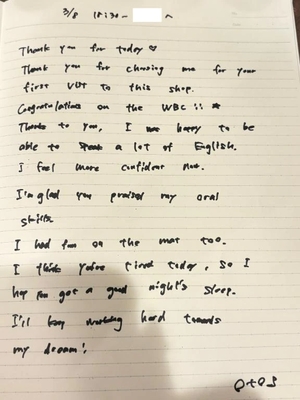 3/8 18:30~ へ
Thank you for today ♡
Thank you for choosing me for your
first to this shop.
Congratulations on the WBC !!
Thanks to you, I was happy to be
able to speak a lot of English.
I feel more confident now.
I'm glad you praised my oral
skills.
I had fun on the mat too.
I think you're tired today, so I
hope you get a good night's sleep.
I'll keep working hard towards
my dream!